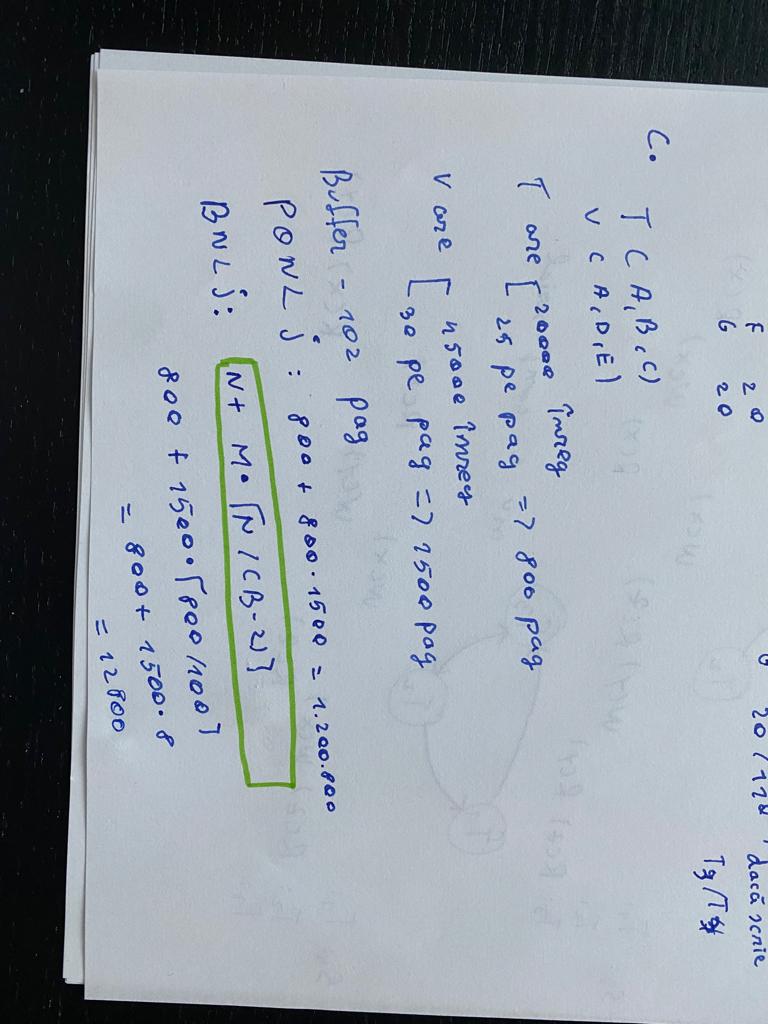 F 20
G 20
20/
dacă scrie
T3/T
C.
T ( A, B, C)
V ( A, D, E)
T are 20000 înreg
25 pe pag => 800 pag
V are 45000 înreg
30 pe pag => 1500 pag
Buffer - 102 pag
PONLj: 800 + 800·1500 = 1.200.800
BNLj: N + M·⌈N/(B-2)⌉
800 + 1500·⌈800/100⌉
= 800 + 1500·8
= 12800